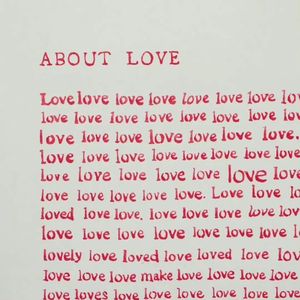 ABOUT LOVE
Love love love love love love love
love love love love love love love love
love love love love love love love.
love love love love love love love love
love love love love love love love
love love love love love. Love love
loved love love. love love love love love
love love love love love love love
lovely love loved love loved love
love love love make love love love love
love loves love love love love love